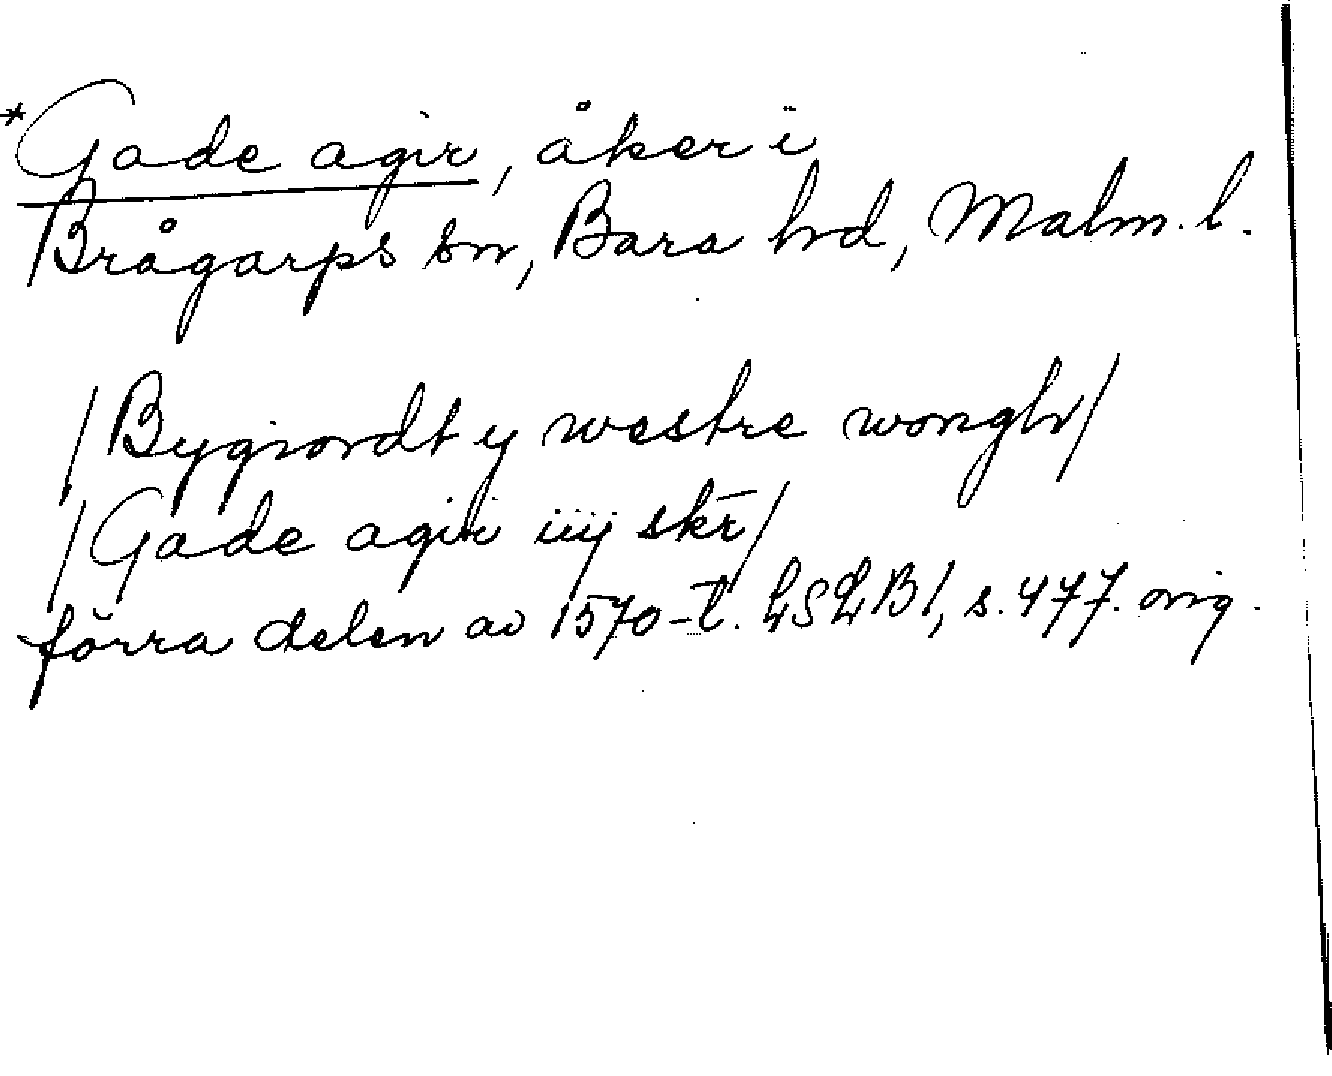 *Gade agir, åker i
Brågarps sn, Bara hd, Malm. l.
/Bygiordt y westre wongh/
/Gade agir iiij skr̄/
förra delen av 1570-t. LSLB1, s. 477. orig.